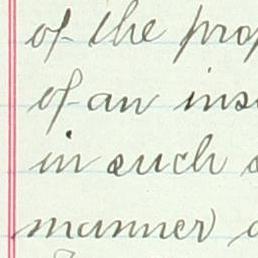 of the prop
of an ins
in such
manner